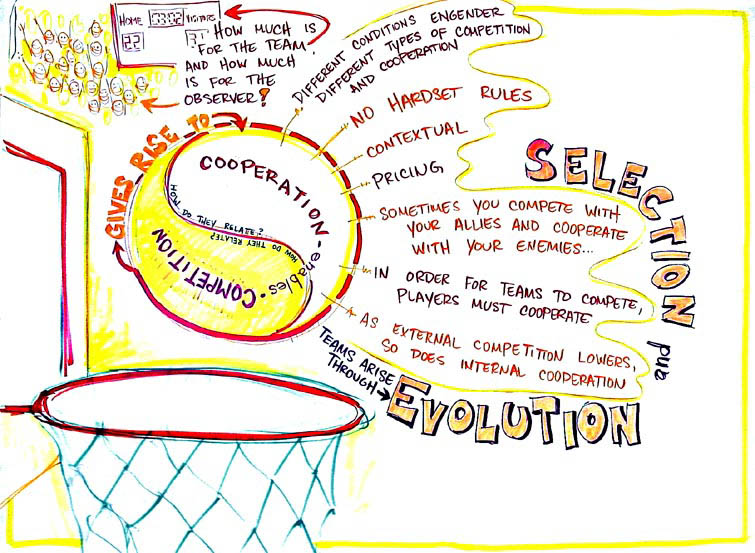 HOME 03:02 VISITORS
22
HOW MUCH IS
FOR THE TEAM
AND HOW MUCH
IS FOR THE
OBSERVER?
DIFFERENT CONDITIONS ENGENDER
DIFFERENT TYPES OF COMPETITION
AND COOPERATION
NO HARDSET RULES
CONTEXTUAL
PRICING
SOMETIMES YOU COMPETE WITH
YOUR ALLIES AND COOPERATE
WITH YOUR ENEMIES...
IN ORDER FOR TEAMS TO COMPETE,
PLAYERS MUST COOPERATE
AS EXTERNAL COMPETITION LOWERS,
SO DOES INTERNAL COOPERATION
GIVES RISE TO
COOPERATION-enables-COMPETITION
HOW DO THEY RELATE?
HOW DO THEY RELATE?
TEAMS ARISE
THROUGH
SELECTION
and
EVOLUTION